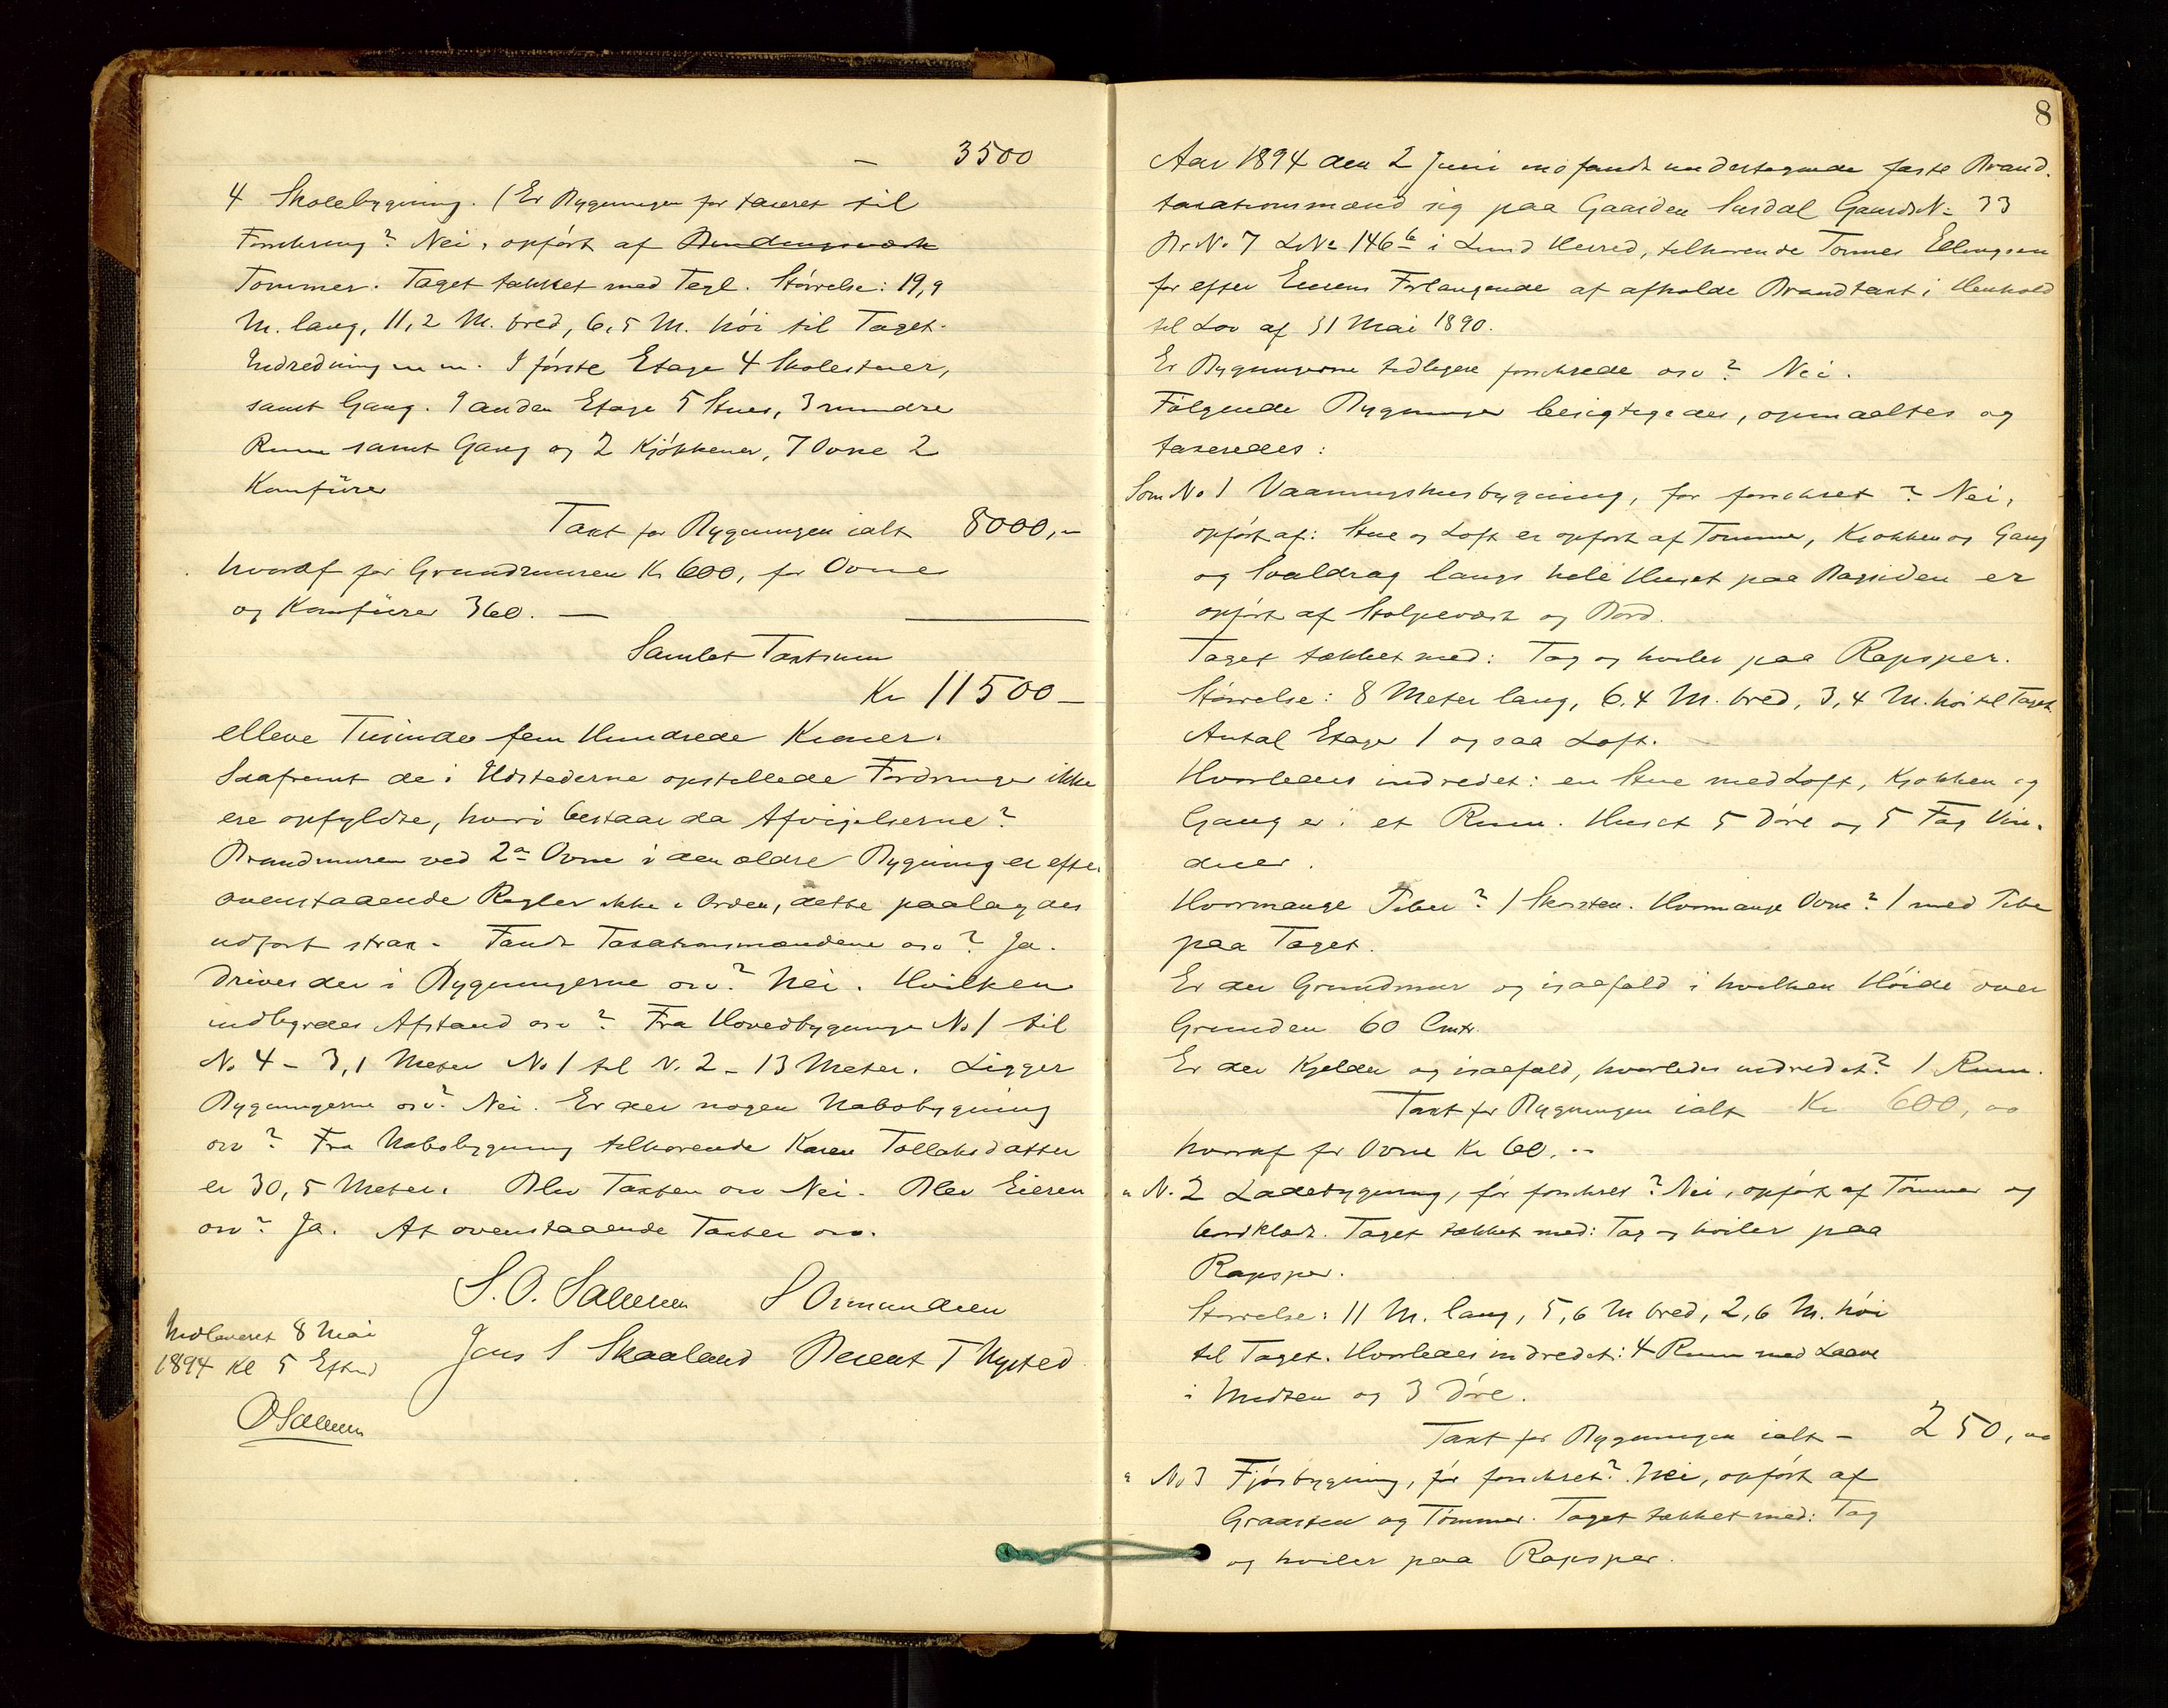 – 3500
4 Skolebygning. (Er Bygningen før taxeret til
Forsikring? Nei, opført af Bindingsværk
Tømmer. Taget tækket med Tegl. Størrelse: 19,9
M. lang, 11,2 M. bred, 6,5 M. høi til Taget.
Indredning m m. I første Etage 4 Skolestuer,
samt Gang. I anden Etage 5 Stuer, 3 mindre
Rum samt Gang og 2 Kjøkkener, 7 Ovne 2
Komfürer
Taxt for Bygningen ialt 8000,-
hvoraf for Grundmuren Kr 600, for Ovne
og Komfürer 360. —
Samlet Taxtsum
Kr 11500 –
elleve Tusinde fem Hundrede Kroner.
Saafremt de i Udstederne opstillede Fordringer ikke
ere opfyldte, hvori bestaar da Afvigelserne?
Brandmuren ved 2de Ovne i den ældre Bygning er efter
ovenstaaende Regler ikke i Orden, dette paalagdes
udført strax. Fandt Taxationsmændene osv? Ja.
Drives der i Bygningerne osv? Nei. Hvilken
indbyrdes Afstand osv? Fra Hovedbygninge No 1 til
No 4 – 3,1 Meter No 1 til N. 2 – 13 Meter. Ligger
Bygningerne osv? Nei. Er der nogen Nabobygning
osv? Fra Nabobygning tilhørende Karen Tollaksdatter
er 30,5 Meter. Blev Taxten osv Nei. Blev Eieren
osv? Ja. At ovenstaaende Taxter osv.
S. O. Salvesen S Osmundsen
Jens S Skaaland Berent T Nysted
Indleveret 8 Mai
1894 Kl 5 Efterm
OSalvesen
8
Aar 1894 den 2 Juni indfandt undertegnede faste Brand-
taxationsmænd sig paa Gaarden Surdal GaardsN: 33
Br. No 7 LNo 146 b i Lund Herred, tilhørende Tønnes Ellingsen
for efter Eierens Forlangende at afholde Brandtaxt i Henhold
til Lov af 31 Mai 1890.
Er Bygningerne tidligere forsikrede osv? Nei.
Følgende Bygninger besigtigedes, opmaaltes og
taxeredes:
Som No 1 Vaaningshusbygning, før forsikret? Nei,
opført af: Stue og Loft er opført af Tømmer, Kjøkken og Gang
og Svaldrag langs hele Huset paa Bagsiden er
opført af Stolpeværk og Bord.
Taget tækket med: Tag og hviler paa Rapsper.
Størrelse: 8 Meter lang, 6,4 M. bred, 3,4 M. høi til Taget
Antal Etager 1 og saa Loft.
Hvorledes indredet: en Stue med Loft, Kjøkken og
Gang er i et Rum. Huset 5 Døre og 5 Fag Vin-
duer.
Hvormange Piber? 1 Skorsten. Hvormange Ovne? 1 med Pibe
paa Taget.
Er der Grundmur og isaafald i hvilken Høide over
Grunden 60 Cmtr.
Er der Kjelder og isaafald, hvorledes indredet? 1 Rum.
Taxt for Bygningen ialt Kr 600, oo
hvoraf for Ovne Kr 60. --
" N. 2 Ladebygning, før forsikret? Nei, opført af Tømmer og
bordklædt. Taget tækket med: Tag og hviler paa
Rapsper.
Størrelse: 11 M. lang, 5,6 M bred, 2,6 M. høi
til Taget. Hvorledes indredet: 4 Rum med Laave
i Midten og 3 Døre.
Taxt for Bygningen ialt – 250, oo
" No 3 Fjøsbygning, før forsikret? Nei, opført af
Graasten og Tømmer. Taget tækket med: Tag
og hviler paa Rapsper.